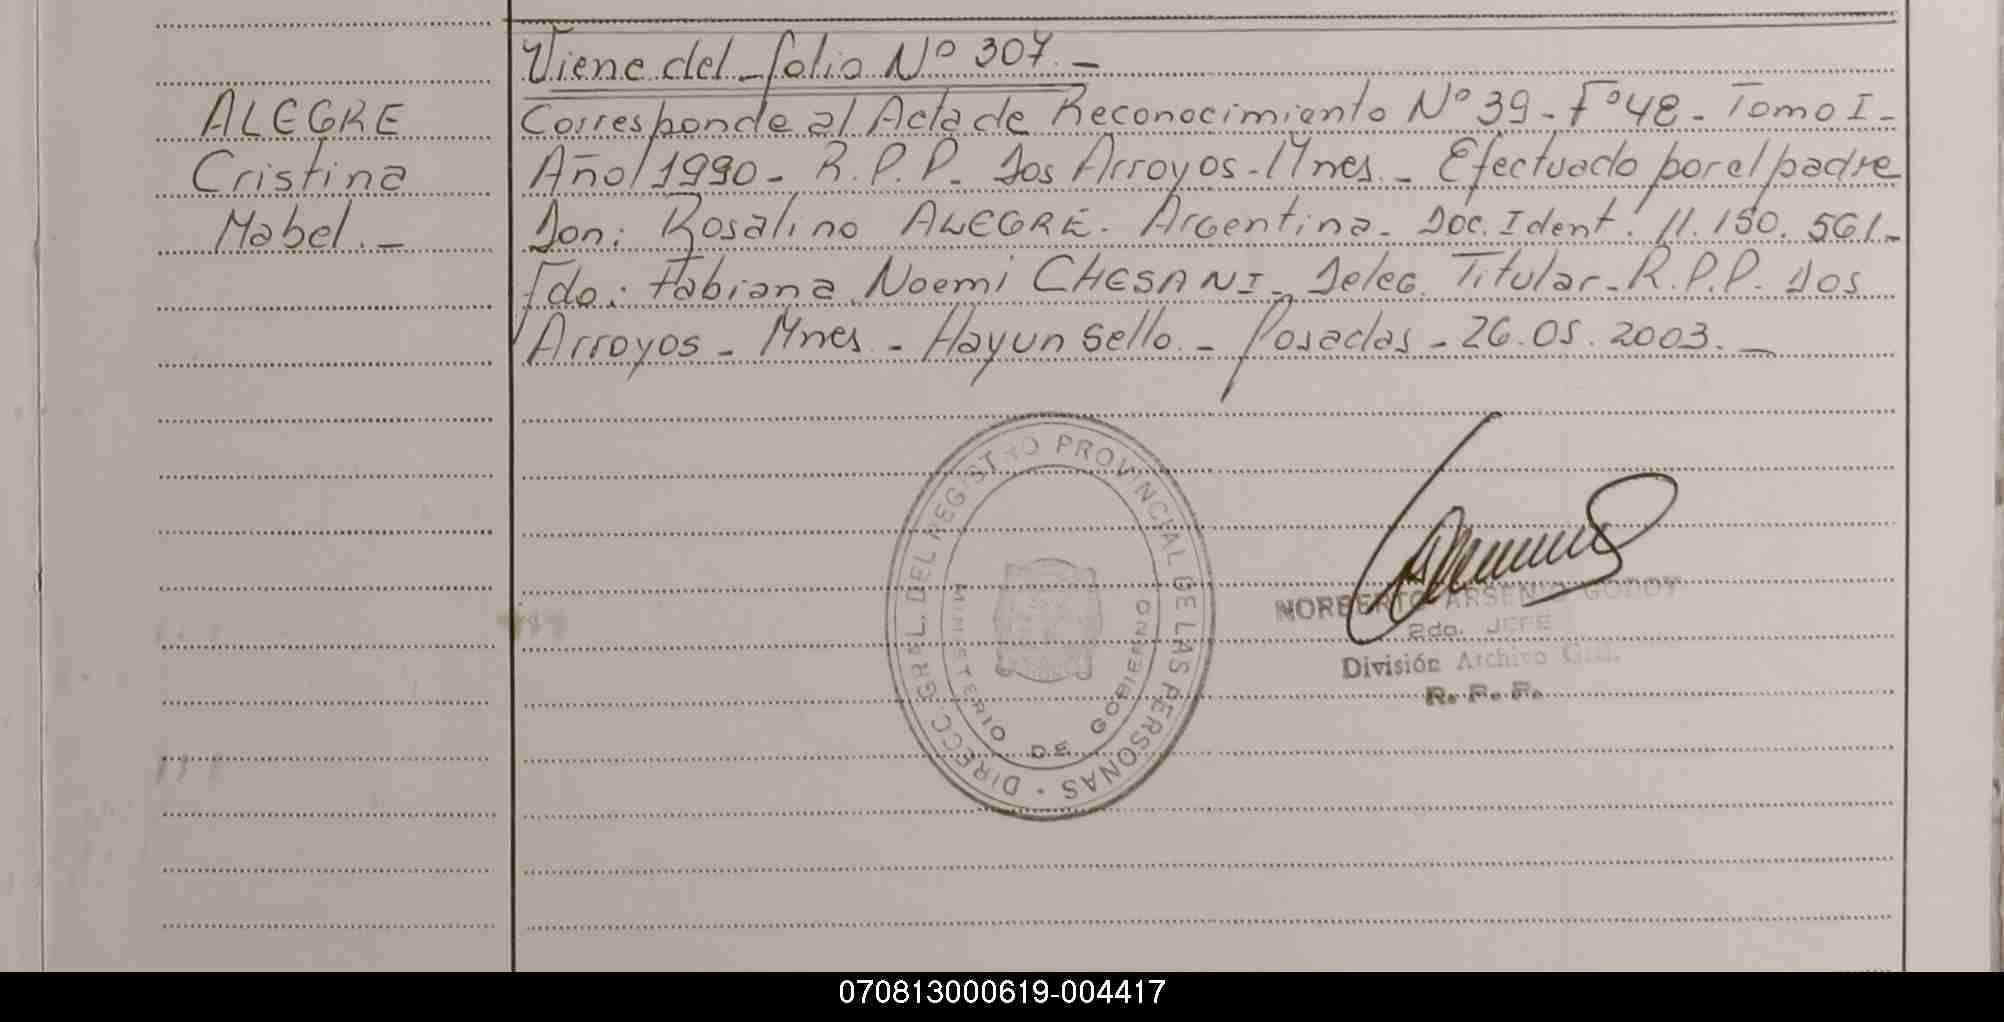 Viene del folio Nº 307.-
ALEGRE
Cristina
Mabel.-
Corresponde al Acta de Reconocimiento Nº 39 - Fº 48 - Tomo I -
Año 1990 - R.P.P. Dos Arroyos - Mnes. - Efectuado por el padre
Don: Rosalino ALEGRE. Argentina. Doc. Ident. 11.150.561.-
Fdo: Fabiana Noemi CHESANI - Deleg. Titular - R.P.P. Dos
Arroyos - Mnes. - Hay un Sello. - Posadas - 26.05.2003.-
DIRECC. GRAL. DEL REGISTRO PROVINCIAL DE LAS PERSONAS
MINISTERIO DE GOBIERNO
NORBERTO ARSENIO GODOY
2do. JEFE
División Archivo Gral.
R. P. P.
070813000619-004417